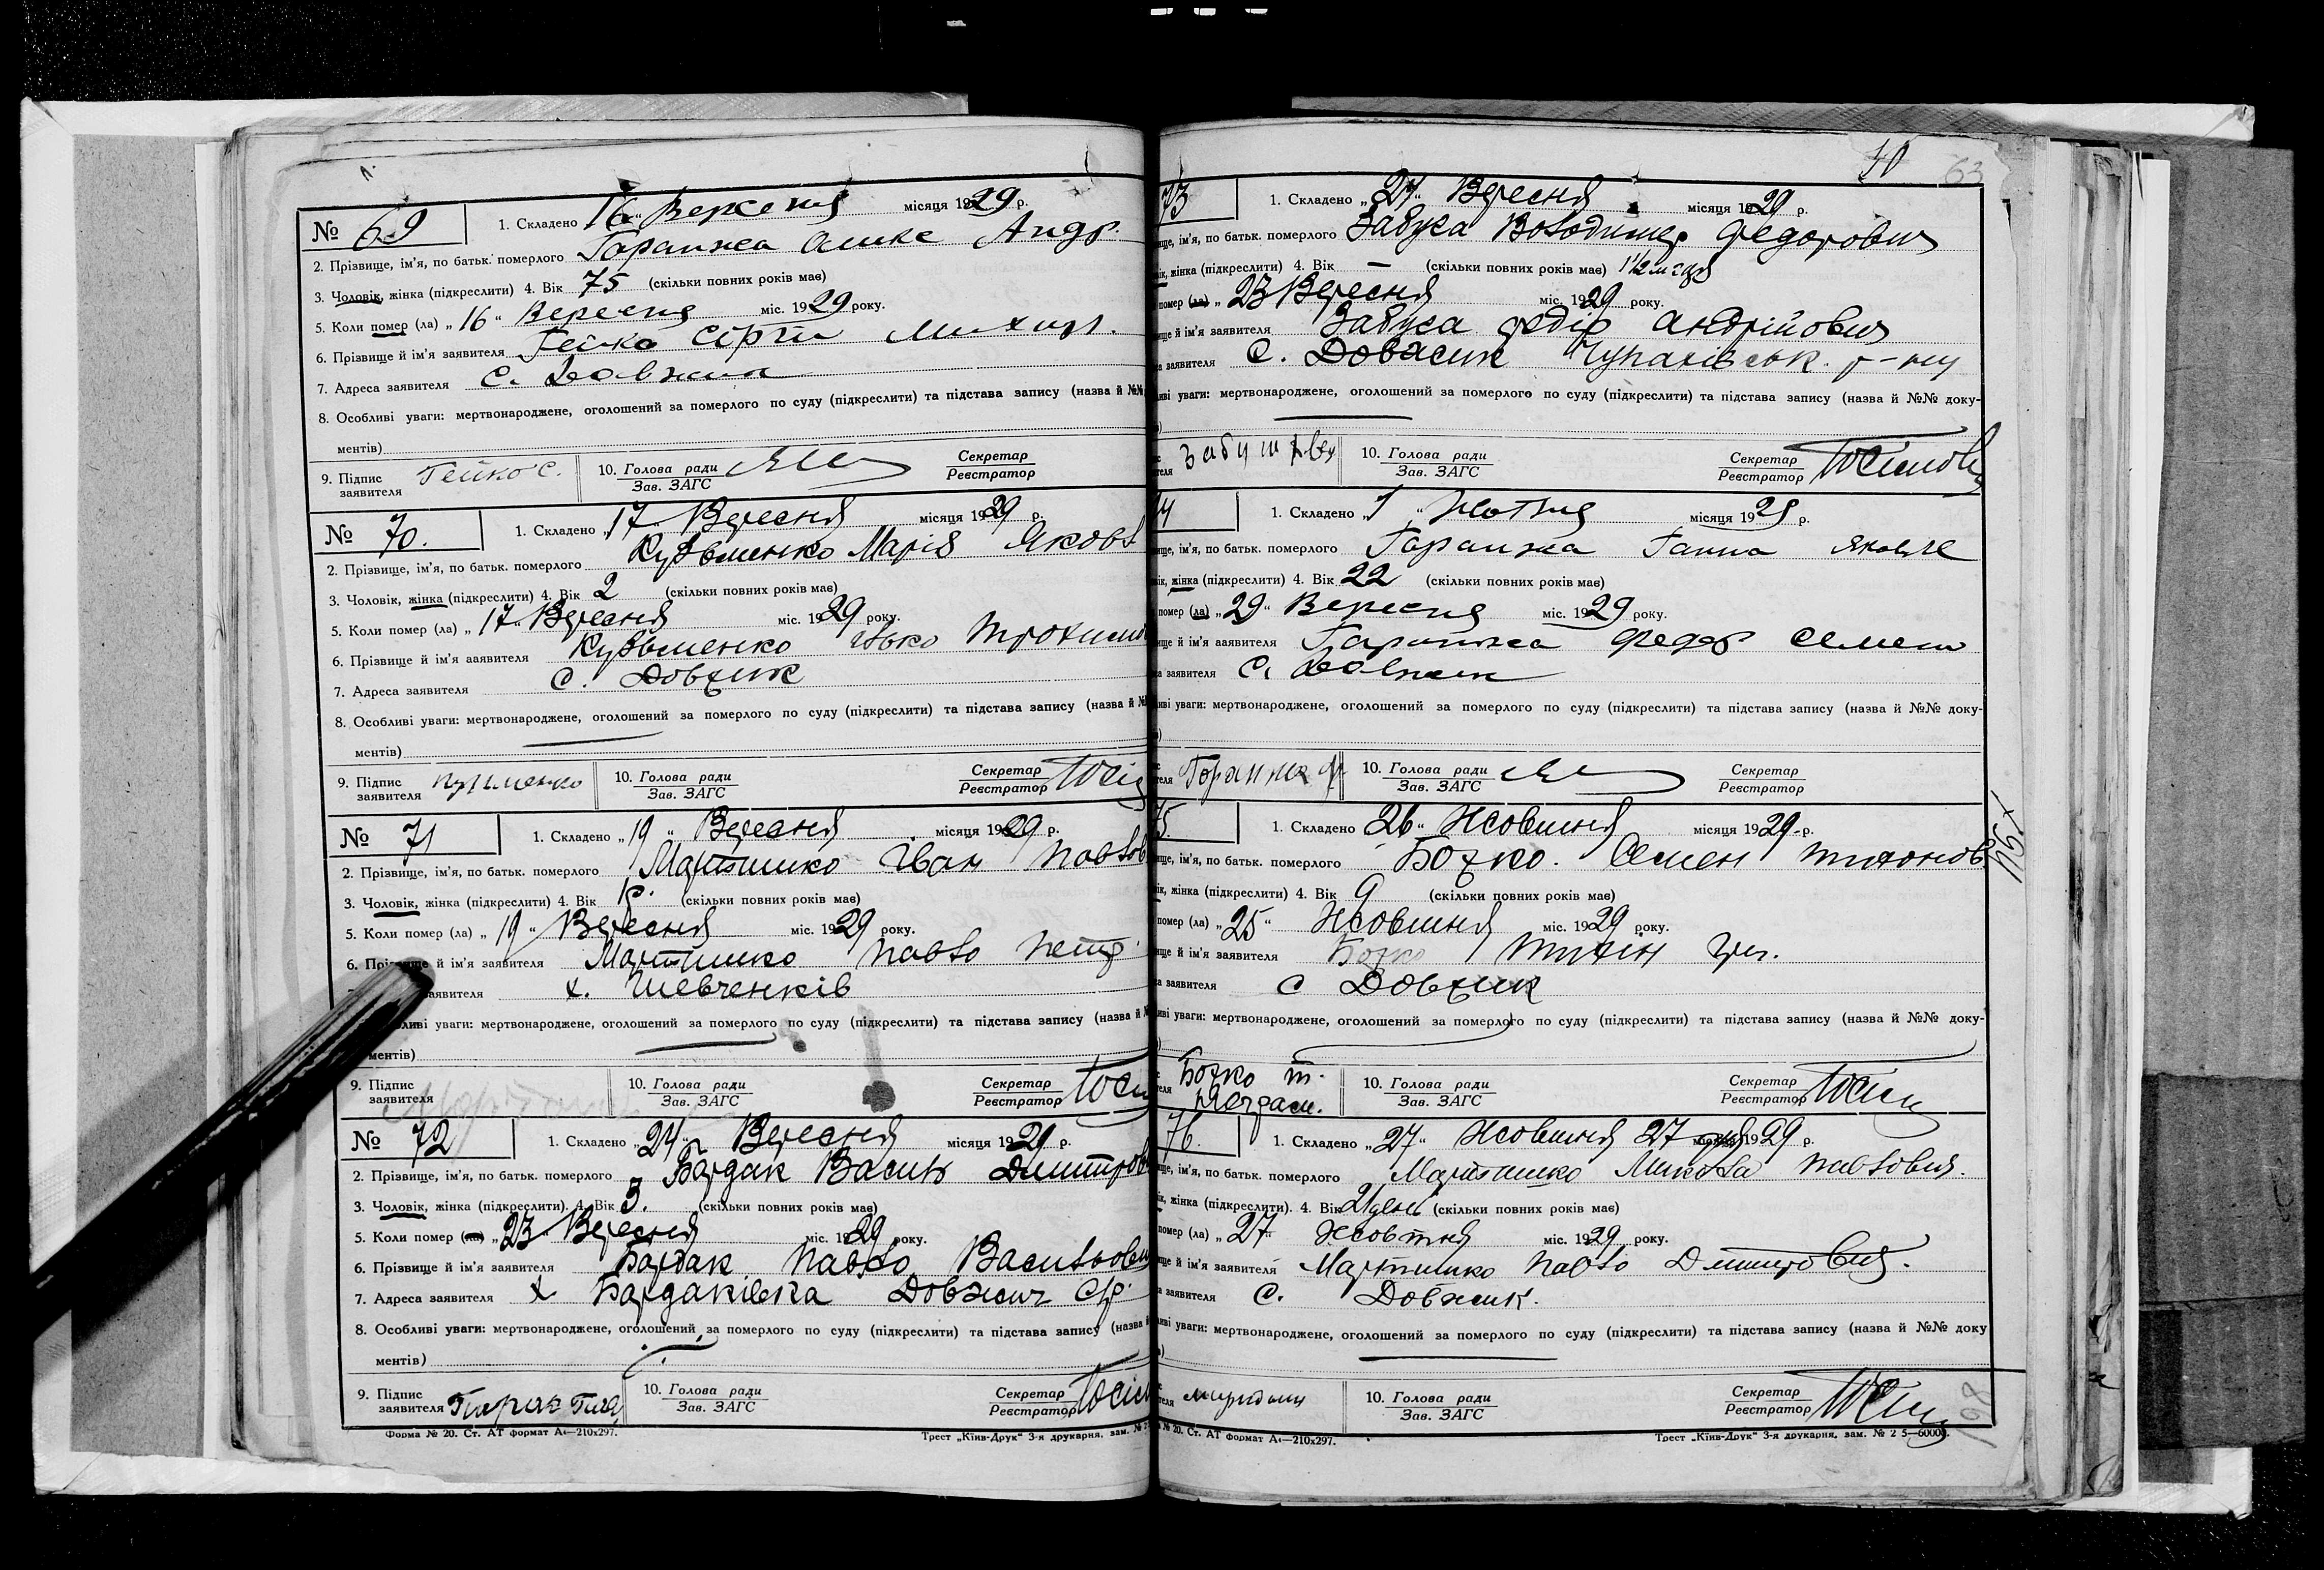 № 69 1. Складено „16“ Вересня місяця 1929 р.
2. Прізвище, ім'я, по батьк. померлого Гаранжа Андр.
3. Чоловік, жінка (підкреслити) 4. Вік 75 (скільки повних років має)
5. Коли помер (ла) „16“ Вересня міс. 1929 року.
6. Прізвище й ім'я заявителя Гейко Сіргій Михайл.
7. Адреса заявителя С. Довжик
8. Особливі уваги: мертвонароджене, оголошений за померлого по суду (підкреслити) та підстава запису (назва й №№
ментів)
9. Підпис заявителя Гейко С. 10. Голова ради Зав. ЗАГС Секретар Реєстратор
№ 70. 1. Складено „17“ Вересня місяця 1929 р.
2. Прізвище, ім'я, по батьк. померлого Кузьменко Марія Яковл
3. Чоловік, жінка (підкреслити) 4. Вік 2 (скільки повних років має)
5. Коли помер (ла) „17“ Вересня міс. 1929 року.
6. Прізвище й ім'я заявителя Кузьменко Трохимо
7. Адреса заявителя с. Довжик
8. Особливі уваги: мертвонароджене, оголошений за померлого по суду (підкреслити) та підстава запису (назва й №
ментів)
9. Підпис заявителя Кузьменко 10. Голова ради Зав. ЗАГС Секретар Реєстратор
№ 71 1. Складено „19“ Вересня місяця 1929 р.
2. Прізвище, ім'я, по батьк. померлого Мартишко Іван Павлов
3. Чоловік, жінка (підкреслити) 4. Вік 1 р. (скільки повних років має)
5. Коли помер (ла) „19“ Вересня міс. 1929 року.
6. Прізвище й ім'я заявителя Мартишко Павло Петр.
заявителя х. Шевченків
уваги: мертвонароджене, оголошений за померлого по суду (підкреслити) та підстава запису (назва й
ментів)
9. Підпис заявителя 10. Голова ради Зав. ЗАГС Секретар Реєстратор
№ 72 1. Складено „24“ Вересня місяця 1929 р.
2. Прізвище, ім'я, по батьк. померлого Бардак Василь Дмитров
3. Чоловік, жінка (підкреслити). 4. Вік 3. (скільки повних років має)
5. Коли помер (ла) „23“ Вересня міс. 1929 року.
6. Прізвище й ім'я заявителя Бардак Павло Васильови
7. Адреса заявителя х Бардаківка Довжич с/р.
8. Особливі уваги: мертвонароджене, оголошений за померлого по суду (підкреслити) та підстава запису (назва й
ментів)
9. Підпис заявителя 10. Голова ради Зав. ЗАГС Секретар Реєстратор
Форма № 20. Ст. АТ формат А4—210х297. Трест „Київ-Друк“ 3-я друкарня, зам. № 2
63
73 1. Складено „27“ Вересня місяця 1929 р.
ім'я, по батьк. померлого Забука Володимер Федорович
жінка (підкреслити) 4. Вік — (скільки повних років має) 1 1/2 м-ця
помер (ла) „23 Вересня міс. 1929 року.
й ім'я заявителя Забука Федір Андрійович
заявителя с. Довжик Чупахівськ. р-ну
уваги: мертвонароджене, оголошений за померлого по суду (підкреслити) та підстава запису (назва й №№ доку-
10. Голова ради Зав. ЗАГС Секретар Реєстратор
74 1. Складено „1“ Жовтня місяця 1929 р.
ім'я, по батьк. померлого Гаранжа Ганна Яковле
жінка (підкреслити) 4. Вік 22 (скільки повних років має)
помер (ла) „29“ Вересня міс. 1929 року.
й ім'я заявителя Гаранжа Федор Семен
заявителя С. Довжик
уваги: мертвонароджене, оголошений за померлого по суду (підкреслити) та підстава запису (назва й №№ доку-
Горанжа Ф 10. Голова ради Зав. ЗАГС Секретар Реєстратор
75. 1. Складено „26“ Жовтня місяця 1929 р.
ім'я, по батьк. померлого Божко Семен Тихонов.
жінка (підкреслити) 4. Вік 9 (скільки повних років має)
помер (ла) „25“ Жовтня міс. 1929 року.
й ім'я заявителя Божко Тихін Гр.
заявителя с Довжик
уваги: мертвонароджене, оголошений за померлого по суду (підкреслити) та підстава запису (назва й №№ доку-
Божко Т. 10. Голова ради Зав. ЗАГС Секретар Реєстратор
76. 1. Складено „27“ Жовтня 27 місяця 1929 р.
ім'я, по батьк. померлого Мартишко Микола Павлович.
жінка (підкреслити). 4. Вік 21 день (скільки повних років має)
помер (ла) „27“ Жовтня міс. 1929 року.
й ім'я заявителя Мартишко Павло Дмитрович.
заявителя С. Довжик.
уваги: мертвонароджене, оголошений за померлого по суду (підкреслити) та підстава запису (назва й №№ доку
10. Голова ради Зав. ЗАГС Секретар Реєстратор
№ 20. Ст. АТ формат А4—210х297. Трест „Київ-Друк“ 3-я друкарня, зам. № 2 5—60000.